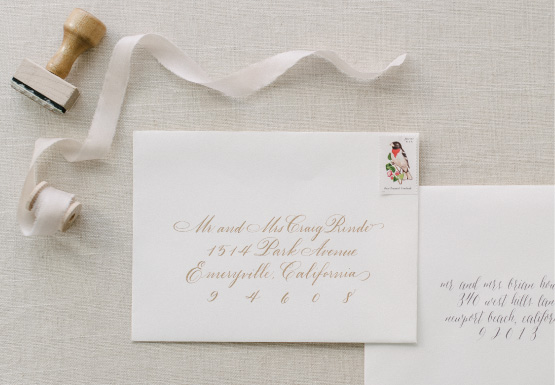 Mr and Mrs Craig Rinde
1514 Park Avenue
Emeryville, California
9 4 6 0 8
mr and mrs brian
340 west hills
newport beach,
92013